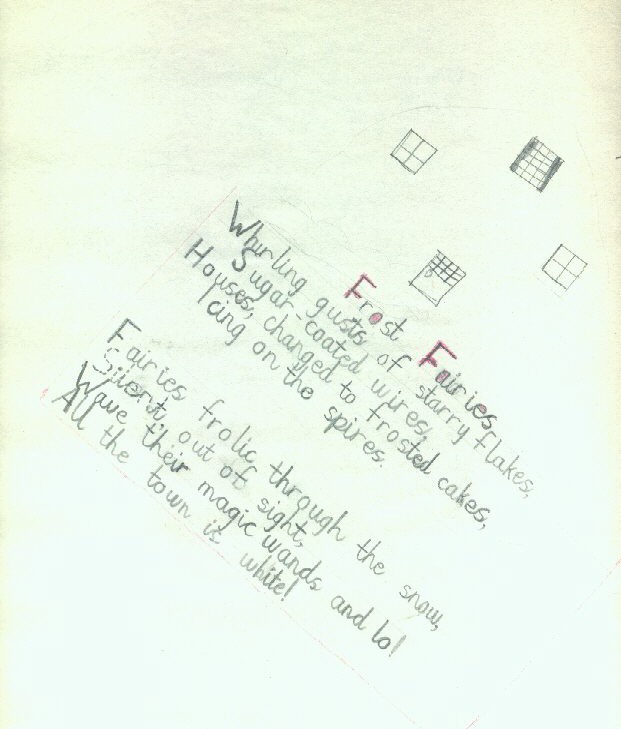 Frost Fairies.
Whirling gusts of starry flakes,
Sugar-coated wires,
Houses, changed to frosted cakes,
Icing on the spires.
Fairies frolic through the snow,
Silent, out of sight,
Wave their magic wands and lo!
All the town is white!